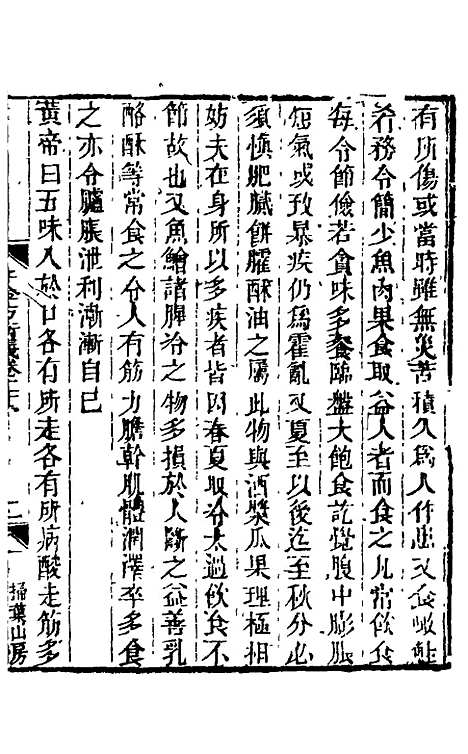 有所傷或當時雖無災苦積久為人作患又食噉鮭
肴務令簡少魚肉果食取益人者而食之凡常飲食
每令節儉若貪味多餐臨盤大飽食訖覺腹中膨脹
短氣或致暴疾仍為霍亂又夏至以後迄至秋分必
須慎肥膩餅臛酥油之屬此物與酒漿瓜果理極相
妨夫在身所以多疾者皆因春夏取冷太過飲食不
節故也又魚鱠諸腥冷之物多損於人斷之益善乳
酪酥等常食之令人有筋力膽幹肌體潤澤卒多食
之亦令臚脹泄利漸漸自已
黃帝曰五味入於口各有所走各有所病酸走筋多
千金方衍義卷二十六
二
掃葉山房